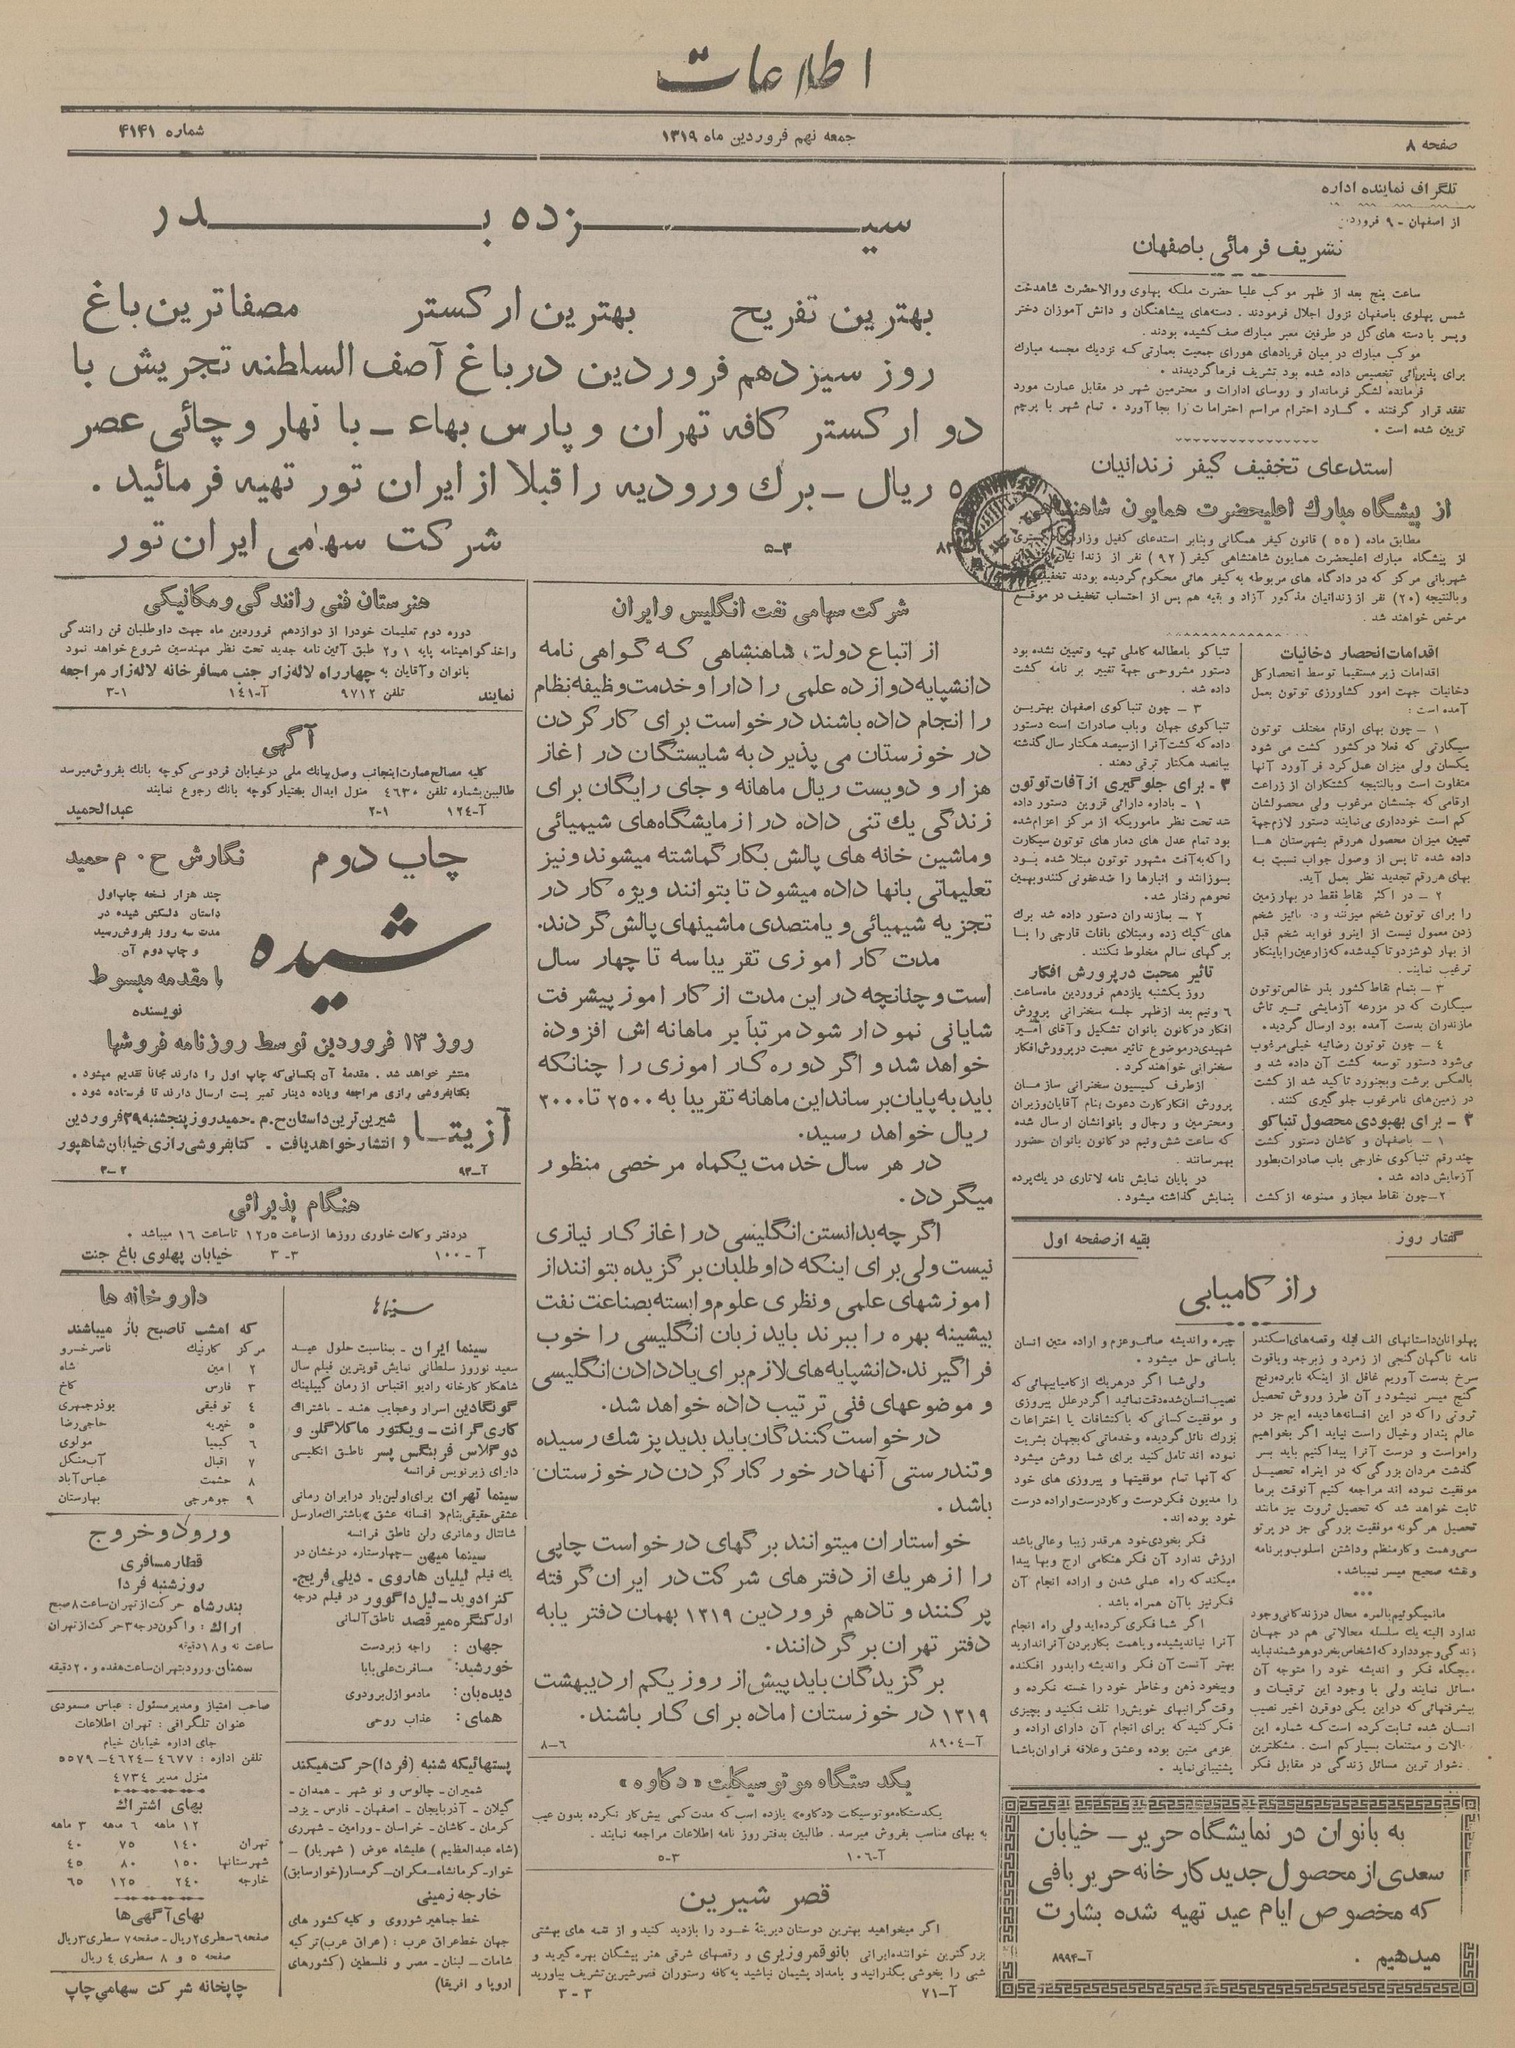 اطلاعات
صفحه ۸
جمعه نهم فروردین ماه ۱۳۱۹
شماره ۴۱۴۱
تلگراف نماینده اداره
از اصفهان - ۹ فروردین
تشریف فرمائی باصفهان
ساعت پنج بعد از ظهر موکب علیا حضرت ملکه پهلوی ووالاحضرت شاهدخت
شمس پهلوی باصفهان نزول اجلال فرمودند . دسته‌های پیشاهنگان و دانش آموزان دختر
وپسر با دسته های گل در طرفین معبر مبارك صف کشیده بودند .
موکب مبارك در میان فریادهای هورای جمعیت بعمارتی که نزدیك مجسمه مبارك
برای پذیرائی تخصیص داده شده بود تشریف فرماگردیدند .
فرمانده لشگر فرماندار و روسای ادارات و محترمین شهر در مقابل عمارت مورد
تفقد قرار گرفتند . گارد احترام مراسم احترامات را بجا آورد . تمام شهر با پرچم
تزیین شده است .
استدعای تخفیف کیفر زندانیان
از پیشگاه مبارك اعلیحضرت همایون شاهنشاهی
مطابق ماده (۵۵) قانون کیفر همگانی وبنابر استدعای کفیل وزارت
از پیشگاه مبارك اعلیحضرت همایون شاهنشاهی کیفر (۹۲) نفر از زندانیان
شهربانی مرکز که در دادگاه های مربوطه به کیفر هائی محکوم گردیده بودند تخفیف
وبالنتیجه (۲۰) نفر از زندانیان مذکور آزاد و بقیه هم پس از احتساب تخفیف در موقع
مرخص خواهند شد .
اقدامات انحصار دخانیات
اقدامات زیر مستقیما توسط انحصار کل
دخانیات جهت امور کشاورزی توتون بعمل
آمده است :
۱ - چون بهای ارقام مختلف توتون
سیگارتی که فعلا در کشور کشت می شود
یکسان ولی میزان عمل کرد فر آورد آنها
متفاوت است وبالنتیجه کشتکاران از زراعت
ارقامی که جنسشان مرغوب ولی محصولشان
کم است خودداری می‌نمایند دستور لازم جهة
تعیین میزان محصول هررقم بشهرستان ها
داده شده تا پس از وصول جواب نسبت به
بهای هررقم تجدید نظر بعمل آید.
۲ - در اکثر نقاط فقط در بهار زمین
را برای توتون شخم میزنند و در پائیز شخم
زدن معمول نیست از اینرو فواید شخم قبل
از بهار گوشزد و تاکید شده که زارعین را باینکار
ترغیب نمایند.
۳ - بتمام نقاط کشور بذر خالص توتون
سیگارت که در مزرعه آزمایشی تیر تاش
مازندران بدست آمده بود ارسال گردید.
٤ - چون توتون رضائیه خیلی مرغوب
می‌شود دستور توسعه کشت آن داده شد و
بالعکس برشت وبجنورد تاکید شد از کشت
در زمین‌های نامرغوب جلوگیری کنند.
۲ - برای بهبودی محصول تنباکو
۱ - باصفهان و کاشان دستور کشت
چند رقم تنباکوی خارجی باب صادرات بطور
آزمایش داده شد .
۲- چون نقاط مجاز و ممنوعه از کشت
تنباکو با مطالعه کاملی تهیه وتعیین شده بود
دستور مشروحی جهة تغییر بر نامه کشت
داده شد .
۳ - چون تنباکوی اصفهان بهترین
تنباکوی جهان وباب صادرات است دستور
داده که کشت آنرا از سیصد هکتار سال گذشته
بپانصد هکتار ترقی دهند .
۳ - برای جلوگیری از آفات توتون
۱ - باداره دارائی قزوین دستور داده
شد تحت نظر ماموریکه از مرکز اعزام شده
بود تمام عدل های دمار های توتون سیگارت
را که به آفت مشهور توتون مبتلا شده بود
بسوزانند و انبارها را ضد عفونی کنند وبهمین
نحو هم رفتار شد .
۲ - بمازندران دستور داده شد برك
های کپك زده ومبتلای بافات قارچی را با
برگهای سالم مخلوط نکنند .
تاثیر محبت در پرورش افکار
روز یکشنبه یازدهم فروردین ماه ساعت
٦ ونیم بعد از ظهر جلسه سخنرانی پرورش
افکار در کانون بانوان تشکیل وآقای امیر
شهیدی در موضوع تاثیر محبت در پرورش افکار
سخنرانی خواهند کرد .
از طرف کمیسیون سخنرانی سازمان
پرورش افکار کارت دعوت بنام آقایان وزیران
ومحترمین و رجال و بانوانشان ارسال شده
که ساعت شش ونیم در کانون بانوان حضور
بهمرسانند .
در پایان نمایش نامه لاتاری در یك پرده
بنمایش گذاشته میشود .
گفتار روز
بقیه از صفحه اول
راز کامیابی
پهلوانان داستانهای الف لیله وقصه های اسکندر
نامه ناگهان گنجی از زمرد و زبرجد ویاقوت
سرخ بدست آوریم غافل از اینکه نابرده رنج
گنج میسر نمیشود و آن طرز وروش تحصیل
ثروتی را که در این افسانه ها دیده ایم جز در
عالم پندار وخیال راست نیاید اگر بخواهیم
راه راست و درست آنرا پیدا کنیم باید بسر
گذشت مردان بزرگی که در اینراه تحصیل
موفقیت نموده اند مراجعه کنیم آنوقت برما
ثابت خواهد شد که تحصیل ثروت نیز مانند
تحصیل هر گونه موفقیت بزرگی جز در پرتو
سعی وهمت وکار منظم وداشتن اسلوب وبرنامه
ونقشه صحیح میسر نمیباشد .
مانمیگوئیم بالمره محال در زندگانی وجود
ندارد البته یك سلسله محالاتی هم در جهان
زندگی وجود دارد که اشخاص بخرد و هوشمند نباید
هیچگاه فکر و اندیشه خود را متوجه آن
مسائل نمایند ولی با وجود این ترقیات و
پیشرفتهائی که در این یکی دو قرن اخیر نصیب
انسان شده ثابت کرده است که شماره این
محالات و ممتنعات بسیار کم است . مشکلترین
دشوار ترین مسائل زندگی در مقابل فکر
چیره واندیشه صائب وعزم و اراده متین انسان
باسانی حل میشود .
ولی شما اگر در هریك از کامیابیهائی که
نصیب انسان شده دقت نمائید اگر در علل پیروزی
و موفقیت کسانی که باکتشافات یا اختراعات
بزرك نائل گردیده وخدماتی که بجهان بشریت
نموده اند تامل کنید برای شما روشن میشود
که آنها تمام موفقیتها و پیروزی های خود
را مدیون فکر درست وکار درست واراده درست
خود بوده اند.
فکر بخودی خود هر قدر زیبا وعالی باشد
ارزش ندارد آن فکر هنگامی ارج وبها پیدا
میکند که راه عملی شدن و اراده انجام آن
فکر نیز با آن همراه باشد .
اگر شما فکری کرده اید ولی راه انجام
آنرا نیاندیشیده وباهمت بکاربردن آنرا ندارید
بهتر آنست آن فکر واندیشه را بدور افکنده
وبیخود ذهن وخاطر خود را خسته نکرده و
وقت گرانبهای خویش را تلف نکنید و بچیزی
فکر کنید که برای انجام آن دارای اراده و
عزمی متین بوده وعشق وعلاقه فراوان باشما
پشتیبانی نماید .
به بانوان در نمایشگاه حریر - خیابان
سعدی از محصول جدید کارخانه حریر بافی
که مخصوص ایام عید تهیه شده بشارت
میدهیم .
آ-۸۹۹۴
سیزده بدر
بهترین تفریح بهترین ارکستر مصفاترین باغ
روز سیزدهم فروردین در باغ آصف السلطنه تجریش با
دو ارکستر کافه تهران و پارس بهاء - با نهار و چائی عصر
ریال - برك ورودیه را قبلا از ایران تور تهیه فرمائید .
شرکت سهامی ایران تور
۵-۳
شرکت سهامی نفت انگلیس و ایران
از اتباع دولت شاهنشاهی که گواهی نامه
دانشپایه دوازده علمی را دارا و خدمت وظیفه نظام
را انجام داده باشند درخواست برای کار کردن
در خوزستان می پذیرد به شایستگان در اغاز
هزار و دویست ریال ماهانه و جای رایگان برای
زندگی یك تنی داده در ازمایشگاه‌های شیمیائی
و ماشین خانه های پالش بکار گماشته میشوند و نیز
تعلیماتی بانها داده میشود تا بتوانند ویژه کار در
تجزیه شیمیائی و یا متصدی ماشینهای پالش گردند.
مدت کار اموزی تقریبا سه تا چهار سال
است و چنانچه در این مدت از کار اموز پیشرفت
شایانی نمودار شود مرتباً بر ماهانه اش افزوده
خواهد شد و اگر دوره کار اموزی را چنانکه
باید به پایان برساند این ماهانه تقریبا به ۲۵۰۰ تا ۳۰۰۰
ریال خواهد رسید.
در هر سال خدمت یکماه مرخصی منظور
میگردد.
اگر چه بدانستن انگلیسی در اغاز کار نیازی
نیست ولی برای اینکه داوطلبان برگزیده بتوانند از
اموزشهای علمی و نظری علوم وابسته بصناعت نفت
بیشینه بهره را ببرند باید زبان انگلیسی را خوب
فراگیرند. دانشپایه های لازم برای یاددادن انگلیسی
و موضوعهای فنی ترتیب داده خواهد شد.
درخواست کنندگان باید بدید پزشك رسیده
و تندرستی آنها در خور کار کردن در خوزستان
باشد .
خواستاران میتوانند برگهای درخواست چاپی
را از هریك از دفترهای شرکت در ایران گرفته
پر کنند و تا دهم فروردین ۱۳۱۹ بهمان دفتر یا به
دفتر تهران برگردانند.
برگزیدگان باید پیش از روز یکم اردیبهشت
۱۳۱۹ در خوزستان اماده برای کار باشند.
آ-۸۹۰٤
۸-٦
یکدستگاه موتوسیکلت «دکاوه»
یکدستگاه موتوسیکلت «دکاوه» یازده اسب که مدت کمی بیش کار نکرده بدون عیب
به بهای مناسب بفروش میرسد . طالبین بدفتر روز نامه اطلاعات مراجعه نمایند .
آ-۱۰٦
۵-۳
قصر شیرین
اگر میخواهید بهترین دوستان دیرینهٔ خود را بازدید کنید و از نغمه های بهشتی
بزرگترین خواننده ایرانی بانو قمر وزیری و رقصهای شرقی هنر پیشگان بهره گیرید و
شبی را بخوشی بگذرانید و بامداد پشیمان نباشید به کافه رستوران قصر شیرین تشریف بیاورید
آ-۷۱
۳ - ۳
هنرستان فنی رانندگی و مکانیکی
دوره دوم تعلیمات خود را از دوازدهم فروردین ماه جهت داوطلبان فن رانندگی
واخذ گواهینامه پایه ۱ و ۲ طبق آئین نامه جدید تحت نظر مهندسین شروع خواهد نمود
بانوان وآقایان به چهارراه لاله زار جنب مسافر خانه لاله زار مراجعه
نمایند تلفن ۹۷۱۲ آ-۱٤۱ ۳-۱
آگهی
کلیه مصالح عمارت اینجانب وصل ببانك ملی در خیابان فردوسی کوچه بانك بفروش میرسد
طالبین بشماره تلفن ٤٦۳۰ منزل ابدال بختیار کوچه بانك رجوع نمایند
آ-۱۲٤ ۲-۱ عبدالحمید
چاپ دوم
نگارش ح . م حمید
شیده
چند هزار نسخه چاپ اول
داستان دلکش شیده در
مدت سه روز بفروش رسید
و چاپ دوم آن
با مقدمه مبسوط
نویسنده
روز ۱۳ فروردین توسط روزنامه فروشها
منتشر خواهد شد . مقدمهٔ آن بکسانی که چاپ اول را دارند مجاناً تقدیم میشود .
بکتابفروشی رازی مراجعه ویاده دینار تمبر پست ارسال دارند تا فرستاده شود .
آزیتا
شیرین ترین داستان ح . م . حمید روز پنجشنبه ۲۹ فروردین
انتشار خواهد یافت . کتابفروشی رازی خیابان شاهپور
آ-۹۳
۳-۲
هنگام پذیرائی
در دفتر وکالت خاوری روزها از ساعت ۱۲٫۵ تا ساعت ۱٦ میباشد .
آ-۱۰۰ ۳-۳ خیابان پهلوی باغ جنت
سینماها
سینما ایران - بمناسبت حلول عید
سعید نوروز سلطانی نمایش قویترین فیلم سال
شاهکار کارخانه رادیو اقتباس از رمان کیپلینك
گونگادین اسرار وعجایب هند - باشتراك
کاری گرانت - ویکتور ماکلاگلن و
دوگلاس فربنگس پسر ناطق انگلیسی
دارای زیرنویس فرانسه
سینما تهران برای اولین بار در ایران رمانی
عشقی حقیقی بنام « افسانه عشق » باشتراك مارسل
شانتال وهانری رلن ناطق فرانسه
سینما میهن - چهار ستاره درخشان در
یك فیلم لیلیان هاروی - دیلی فریج-
کنراد وید - لیل داگوور در فیلم درجه
اول کنگره میرقصد ناطق آلمانی
جهان : راجه زبردست
خورشید: مسافرت علی بابا
دیده بان: مادموازل برودوی
همای: عذاب روحی
پستهائیکه شنبه (فردا) حرکت میکند
شمیران - چالوس و نو شهر - همدان -
گیلان - آذربایجان - اصفهان - فارس - یزد-
کرمان - کاشان - خراسان - ورامین - شهرری
(شاه عبدالعظیم) علیشاه عوض (شهریار) -
خوار- کرمانشاه- مکران- گرمسار (خوار سابق)
خارجه زمینی
خط جماهیر شوروی و کلیه کشور های
جهان خط عراق عرب : (عراق عرب) ترکیه
شامات - لبنان - مصر و فلسطین (کشورهای
اروپا و افریقا)
داروخانه ها
که امشب تا صبح باز میباشند
مرکز کارنیك ناصرخسرو
۲ امین شاه
۳ فارس کاخ
٤ توفیقی بوذرجمهری
۵ خیریه حاجی رضا
٦ کیمیا مولوی
۷ اقبال آب منگل
۸ حشمت عباس آباد
۹ جوهرچی بهارستان
ورود و خروج
قطار مسافری
روز شنبه فردا
بندر شاه حرکت از تهران ساعت ۸ صبح
اراك : واگون درجه ۳ حرکت از تهران
ساعت نه و ۱۸ دقیقه
سمنان ورود بتهران ساعت هفده و ۲۰ دقیقه
صاحب امتیاز ومدیر مسئول : عباس مسعودی
عنوان تلگرافی : تهران اطلاعات
جای اداره خیابان خیام
تلفن اداره : ٤٦۷۷-٤٦۲٤-۵۵۷۹
منزل مدیر ٤۷۳٤
بهای اشتراك
۱۲ ماهه ٦ مهه ۳ ماهه
تهران ۱٤۰ ۷۵ ٤۰
شهرستانها ۱۵۰ ۸۰ ٤۵
خارجه ۲٤۰ ۱۲۵ ٦۵
بهای آگهی‌ها
صفحه ٦ سطری ۲ ریال - صفحه ۷ سطری ۳ ریال
صفحه ۵ و ۸ سطری ٤ ریال
چاپخانه شرکت سهامی چاپ